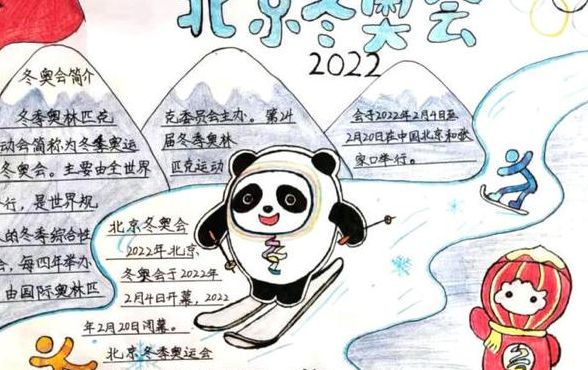 北京冬奥会
2022
冬奥会简介
冬季奥林匹克
动会简称为冬季奥运
冬奥会。主要由全世界
行，是世界规
的冬季综合性
会，每四年举办
由国际奥林匹
克委员会主办。第24
届冬季奥林
匹克运动
会于2022年2月4日至
2月20日在中国北京和张
家口举行。
北京冬奥会
2022年北京
冬奥会于2022年
2月4日开幕，2022
年2月20日闭幕。
北京冬季奥运会